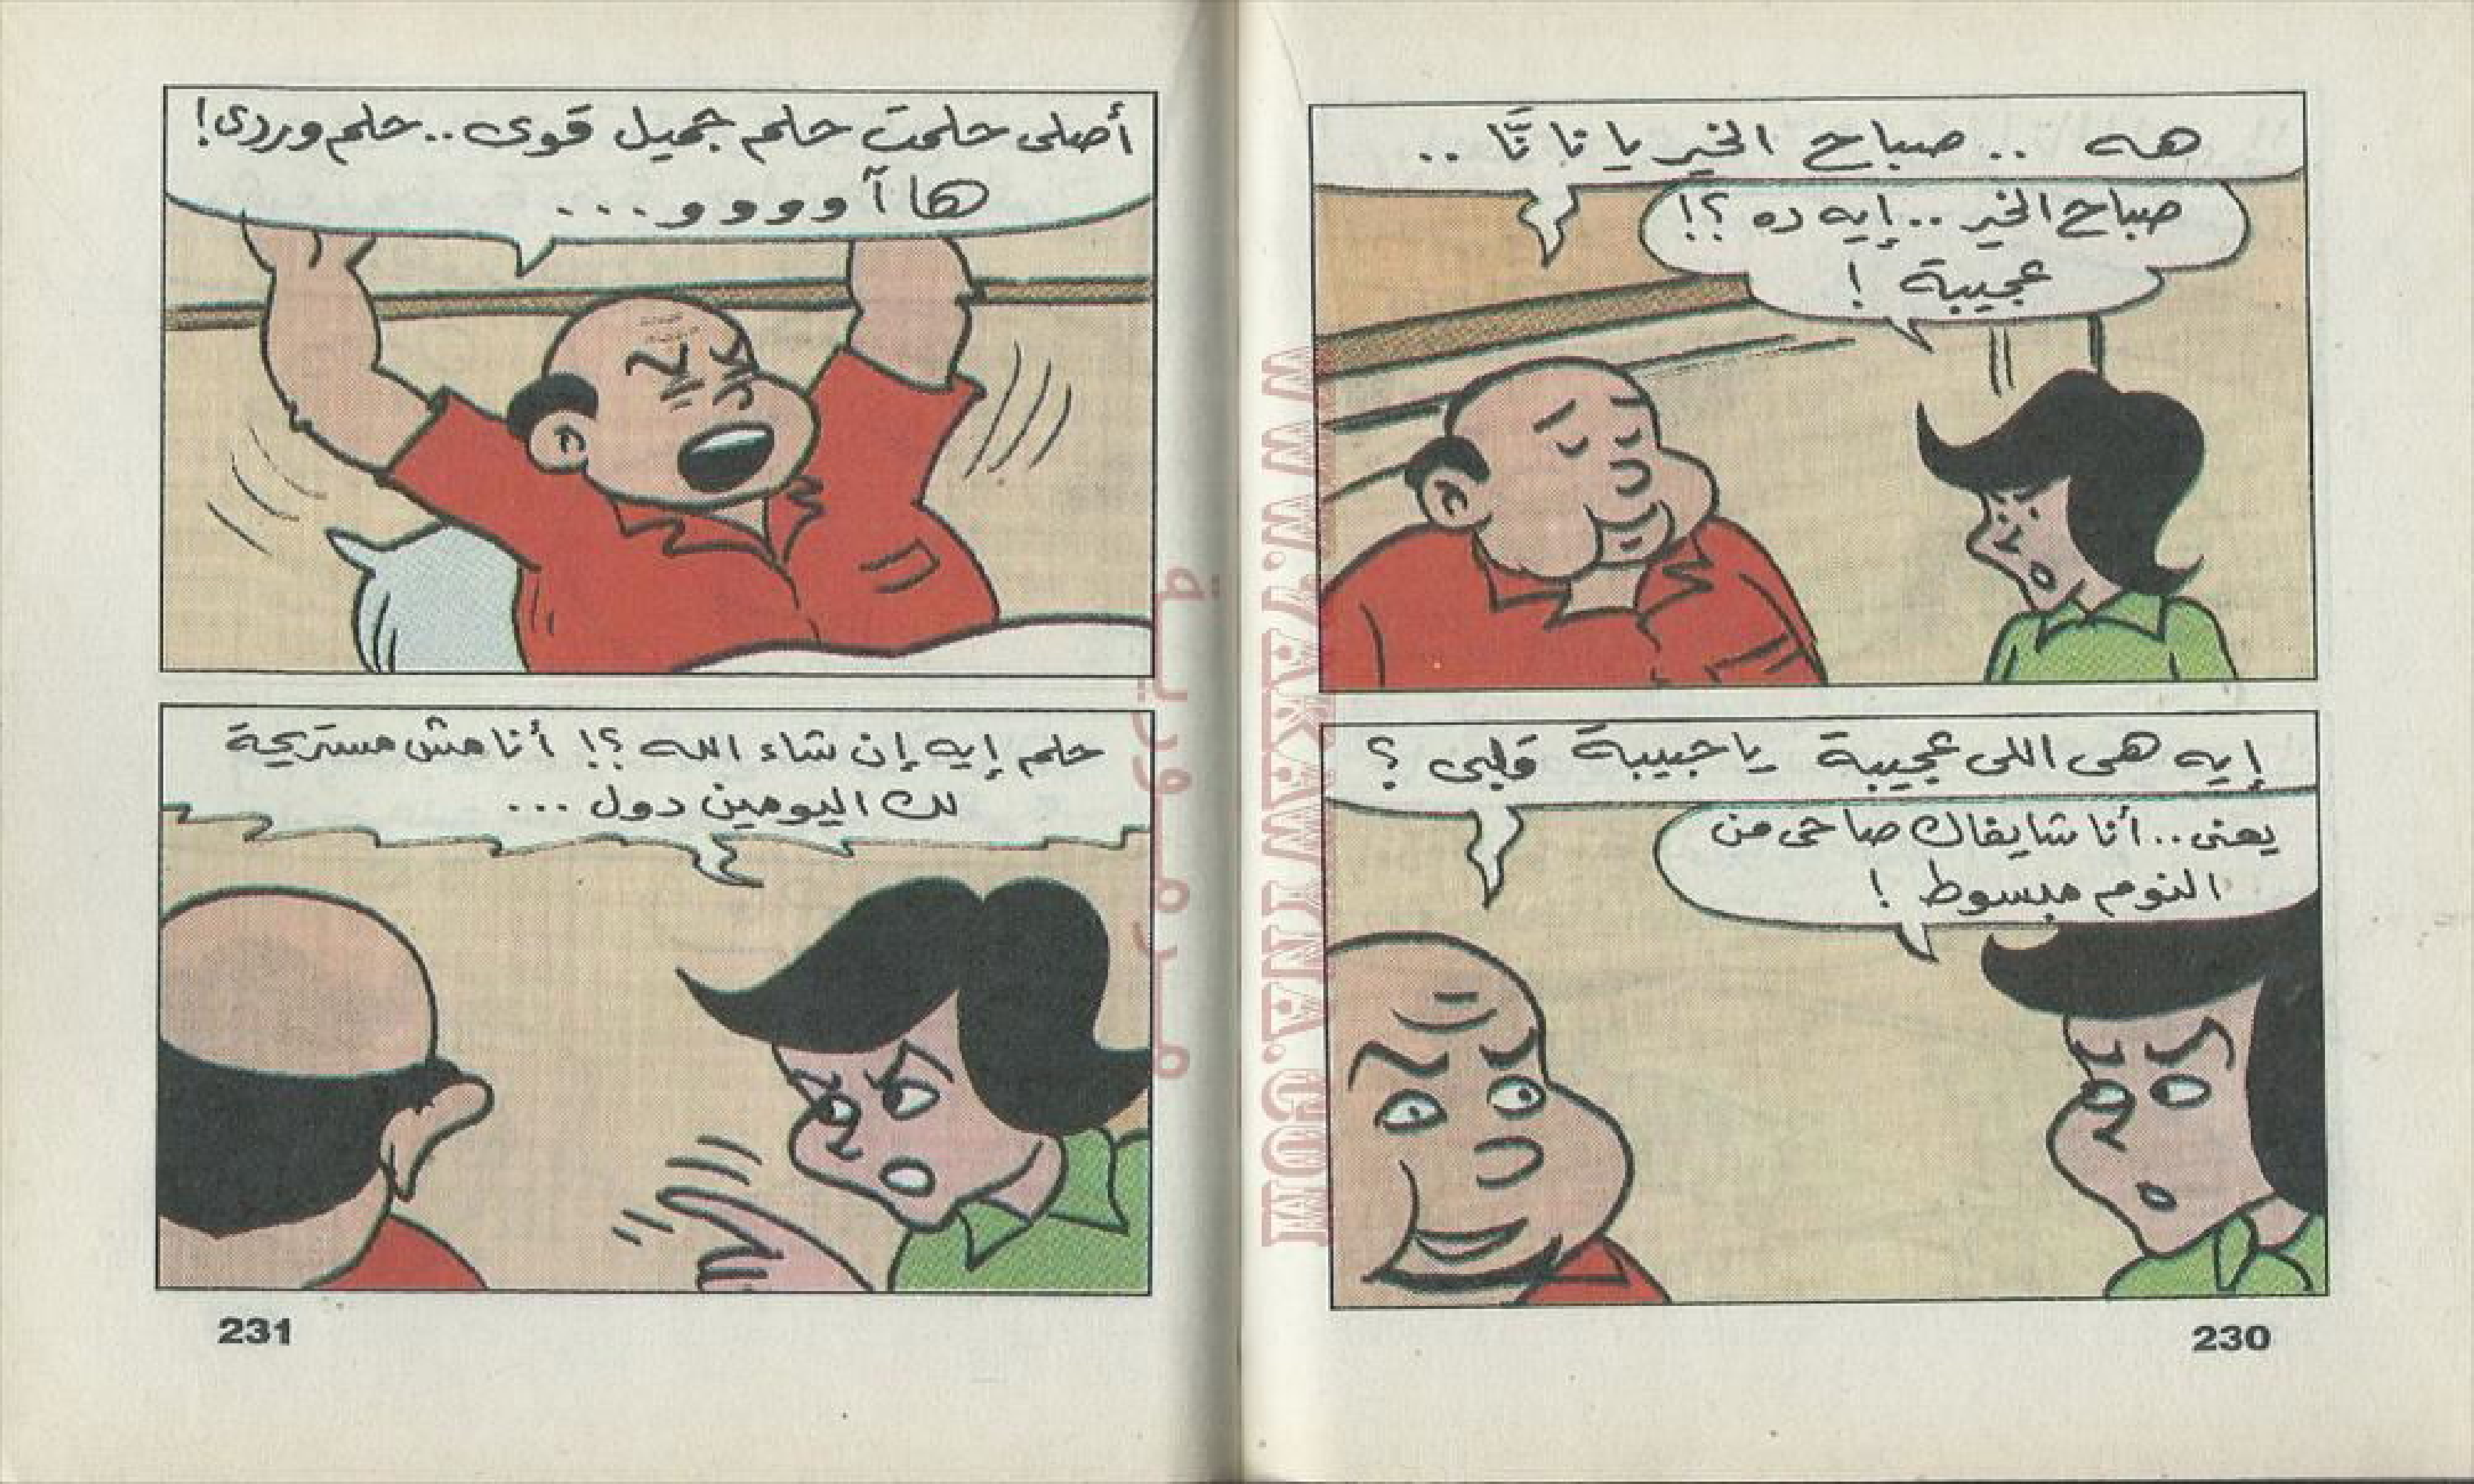 هه .. صباح الخير يا نانَّا ..
صباح الخير .. إيه ده ؟!
عجيبة !
إيه هى اللى عجيبة ياحبيبة قلبى ؟
يعنى .. أنا شايفاك صاحى من
النوم مبسوط !
230
أصلى حلمت حلم جميل قوى .. حلم وردى !
هاآوووو ...
حلم إيه إن شاء الله ؟! أنا مش مستريحة
لك اليومين دول ...
231
WWW.VAKKAWTNA.COM